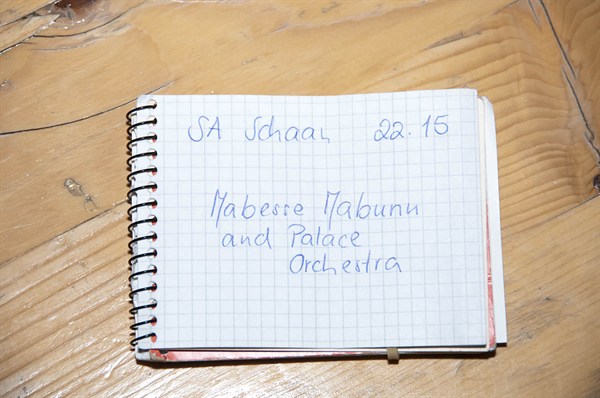 SA Schaan 22.15
Mabesse Mabunn
and Palace
Orchestra